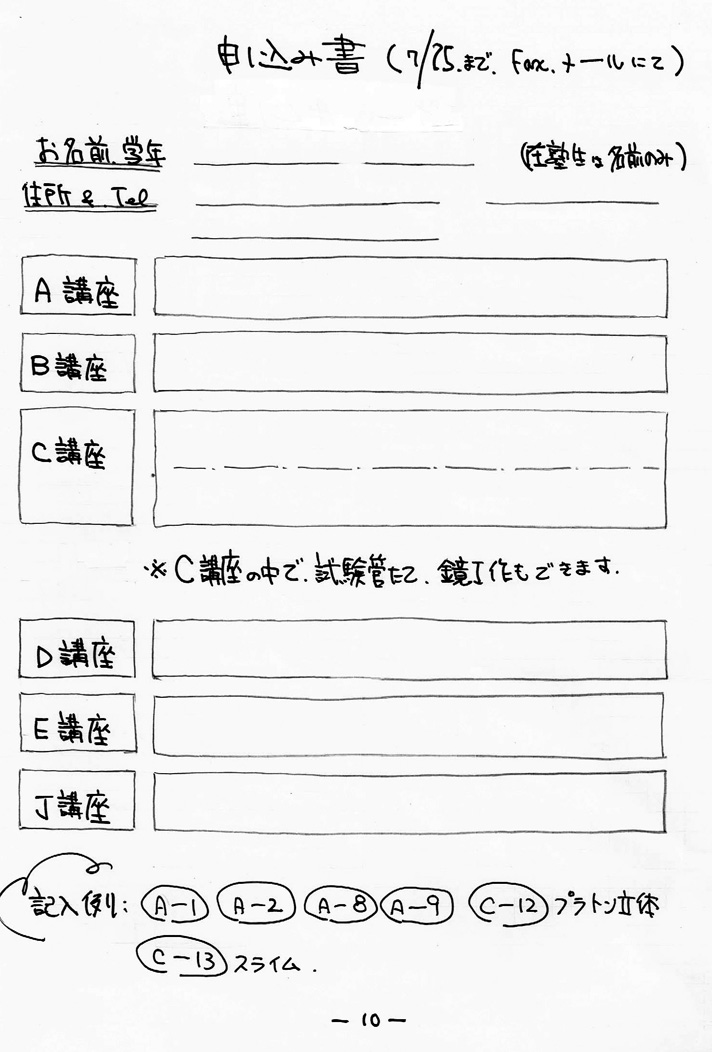 申し込み書 (7/25.まで. Fax. メールにて)
お名前.学年 (在塾生は名前のみ)
住所 & Tel
A 講座
B 講座
C 講座
※ C講座の中で.試験管たて、鏡工作もできます.
D 講座
E 講座
J 講座
記入例: A-1 A-2 A-8 A-9 C-12 プラトン立体
C-13 スライム.
- 10 -